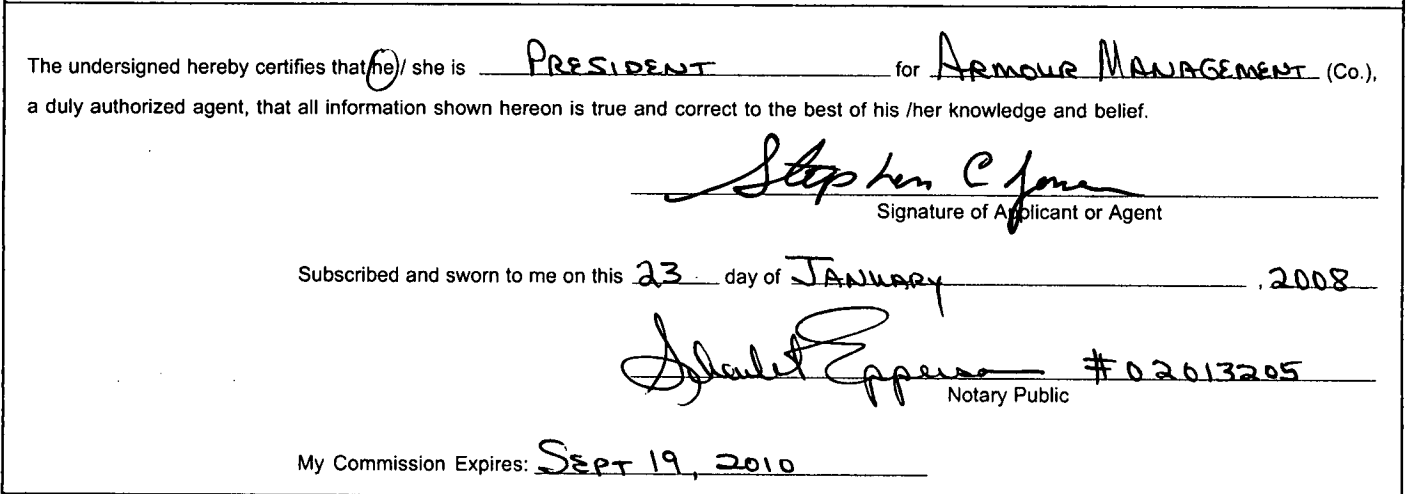 The undersigned hereby certifies that he / she is PRESIDENT for ARMOUR MANAGEMENT (Co.),
a duly authorized agent, that all information shown hereon is true and correct to the best of his /her knowledge and belief.
Stephen C Jones
Signature of Applicant or Agent
Subscribed and sworn to me on this 23 day of JANUARY , 2008
Epperson #02013205
Notary Public
My Commission Expires: SEPT 19, 2010